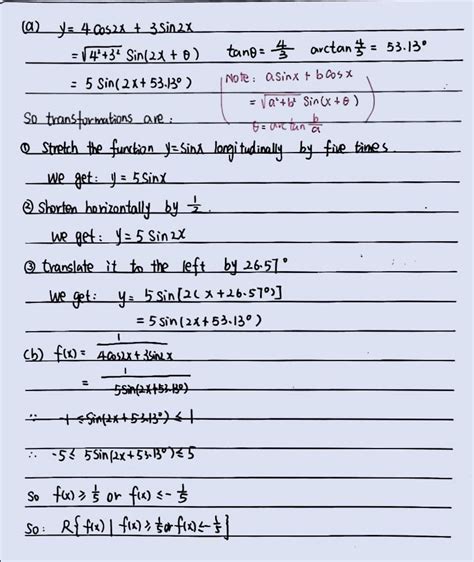 (a) y = 4cos2x + 3sin2x
= √4²+3² Sin(2x + θ) tanθ = 4/3 arctan 4/3 = 53.13°
= 5 Sin(2x + 53.13°) (Note: asinx + bcosx
= √a²+b² Sin(x+θ)
θ = arctan b/a)
So transformations are:
① Stretch the function y=sinx longitudinally by five times.
We get: y = 5sinx
② Shorten horizontally by 1/2.
We get: y = 5sin2x
③ Translate it to the left by 26.57°
We get: y = 5sin[2(x+26.57°)]
= 5sin(2x+53.13°)
(b) f(x) = 1/4cos2x+3sin2x
= 1/5sin(2x+53.13°)
∵ -1 ≤ Sin(2x+53.13°) ≤ 1
∴ -5 ≤ 5Sin(2x+53.13°) ≤ 5
So f(x) ≥ 1/5 or f(x) ≤ -1/5
So: R{f(x) | f(x) ≥ 1/5 or f(x) ≤ -1/5]